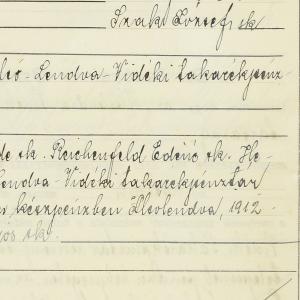 Szaki József sk
ló-Lendva-Vidéki takarékpénz-
de sk. Reichenfeld Edéné sk. He-
endva-Vidéki takarékpénztár
készpénzben Alsolendva, 1912
sk.